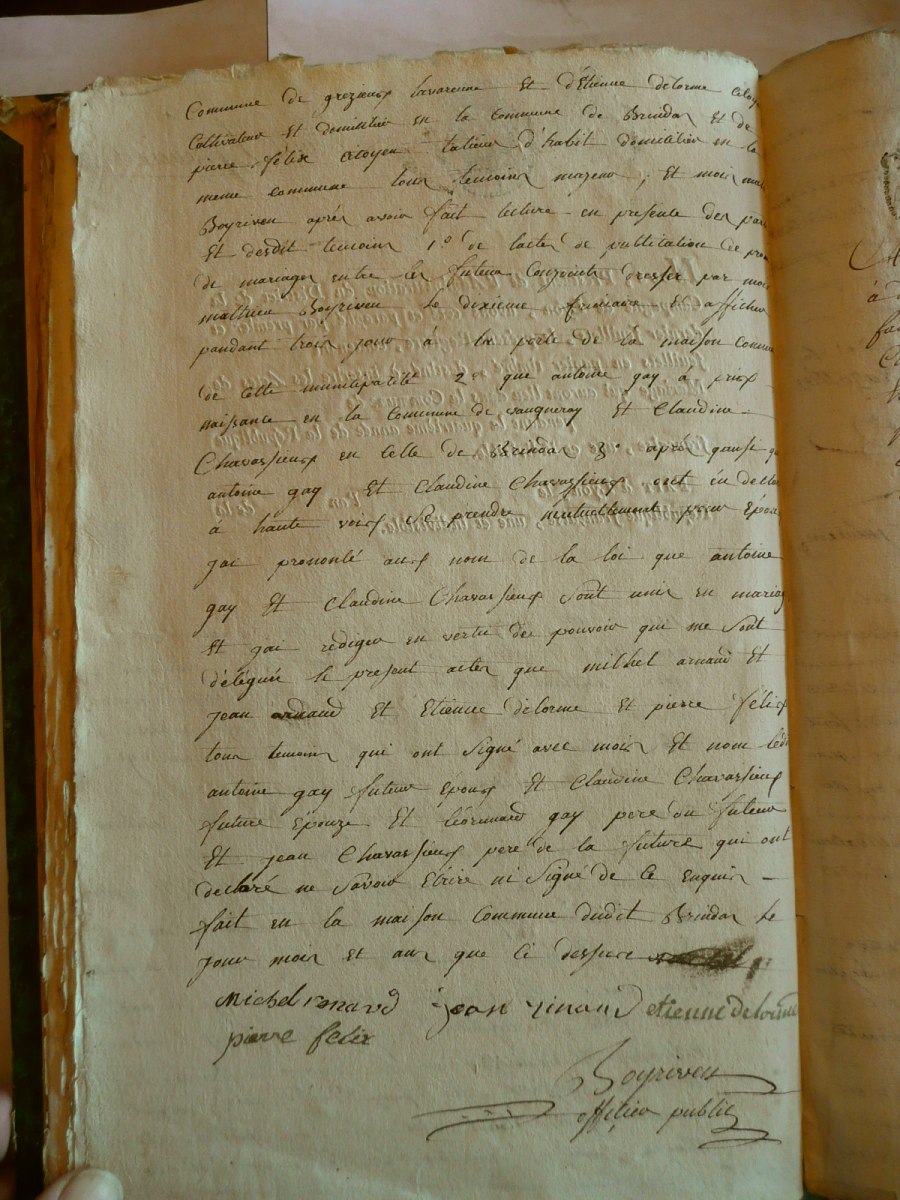 Commune de grezeux lavarenne et d'Etienne delorme Citoy
Cultivateur et domicillié en la commune de Brindas et de
pierre félix citoyen talieur d'habit domicilié en la
meme commune tous temoins majeur ; et moi mat
Boyriven après avoir fait lecture en presente des par
Et desdit temoins 1° de lactes de publication de pro
de mariages entre les futeur Conjoints dresser par moi
mathieu Boyriven le dixieme frimaire et afficher
pandant trois jour à la porte de la maison Commu
de cette municipalité 2° que antoine gay à pris
naissance en la Commune de vaugneray et Claudine
Chavassieux en celle de Brindas 3° après quansi q
antoine gay et Claudine Chavassieux ont eu de clar
à haute voix se prendre mutuellement pour Épou
jai prononcé aux nom de la loi que antoine
gay et Claudine Chavassieux sont unis en mariag
Et jai rediger en vertu des pouvoir qui me sont
délégués le present actes que michel arnaud et
jean arnaud et Etienne delorme et pierre félix
tous temoins qui ont signé avec mois et nom ledi
antoine gay futeur Epoux et Claudine Chavassieux
future Épouze et léonnard gay pere du futeur
Et jean Chavassieux pere de la future qui ont
declaré ne savoir Ecrire ni signé de ce enquis
fait en la maison Commune dudit Brindas le
jour mois et ans que ci dessus
Michel renard jean rinaud etienne delorme
pierre felix
Boyriven
officier public